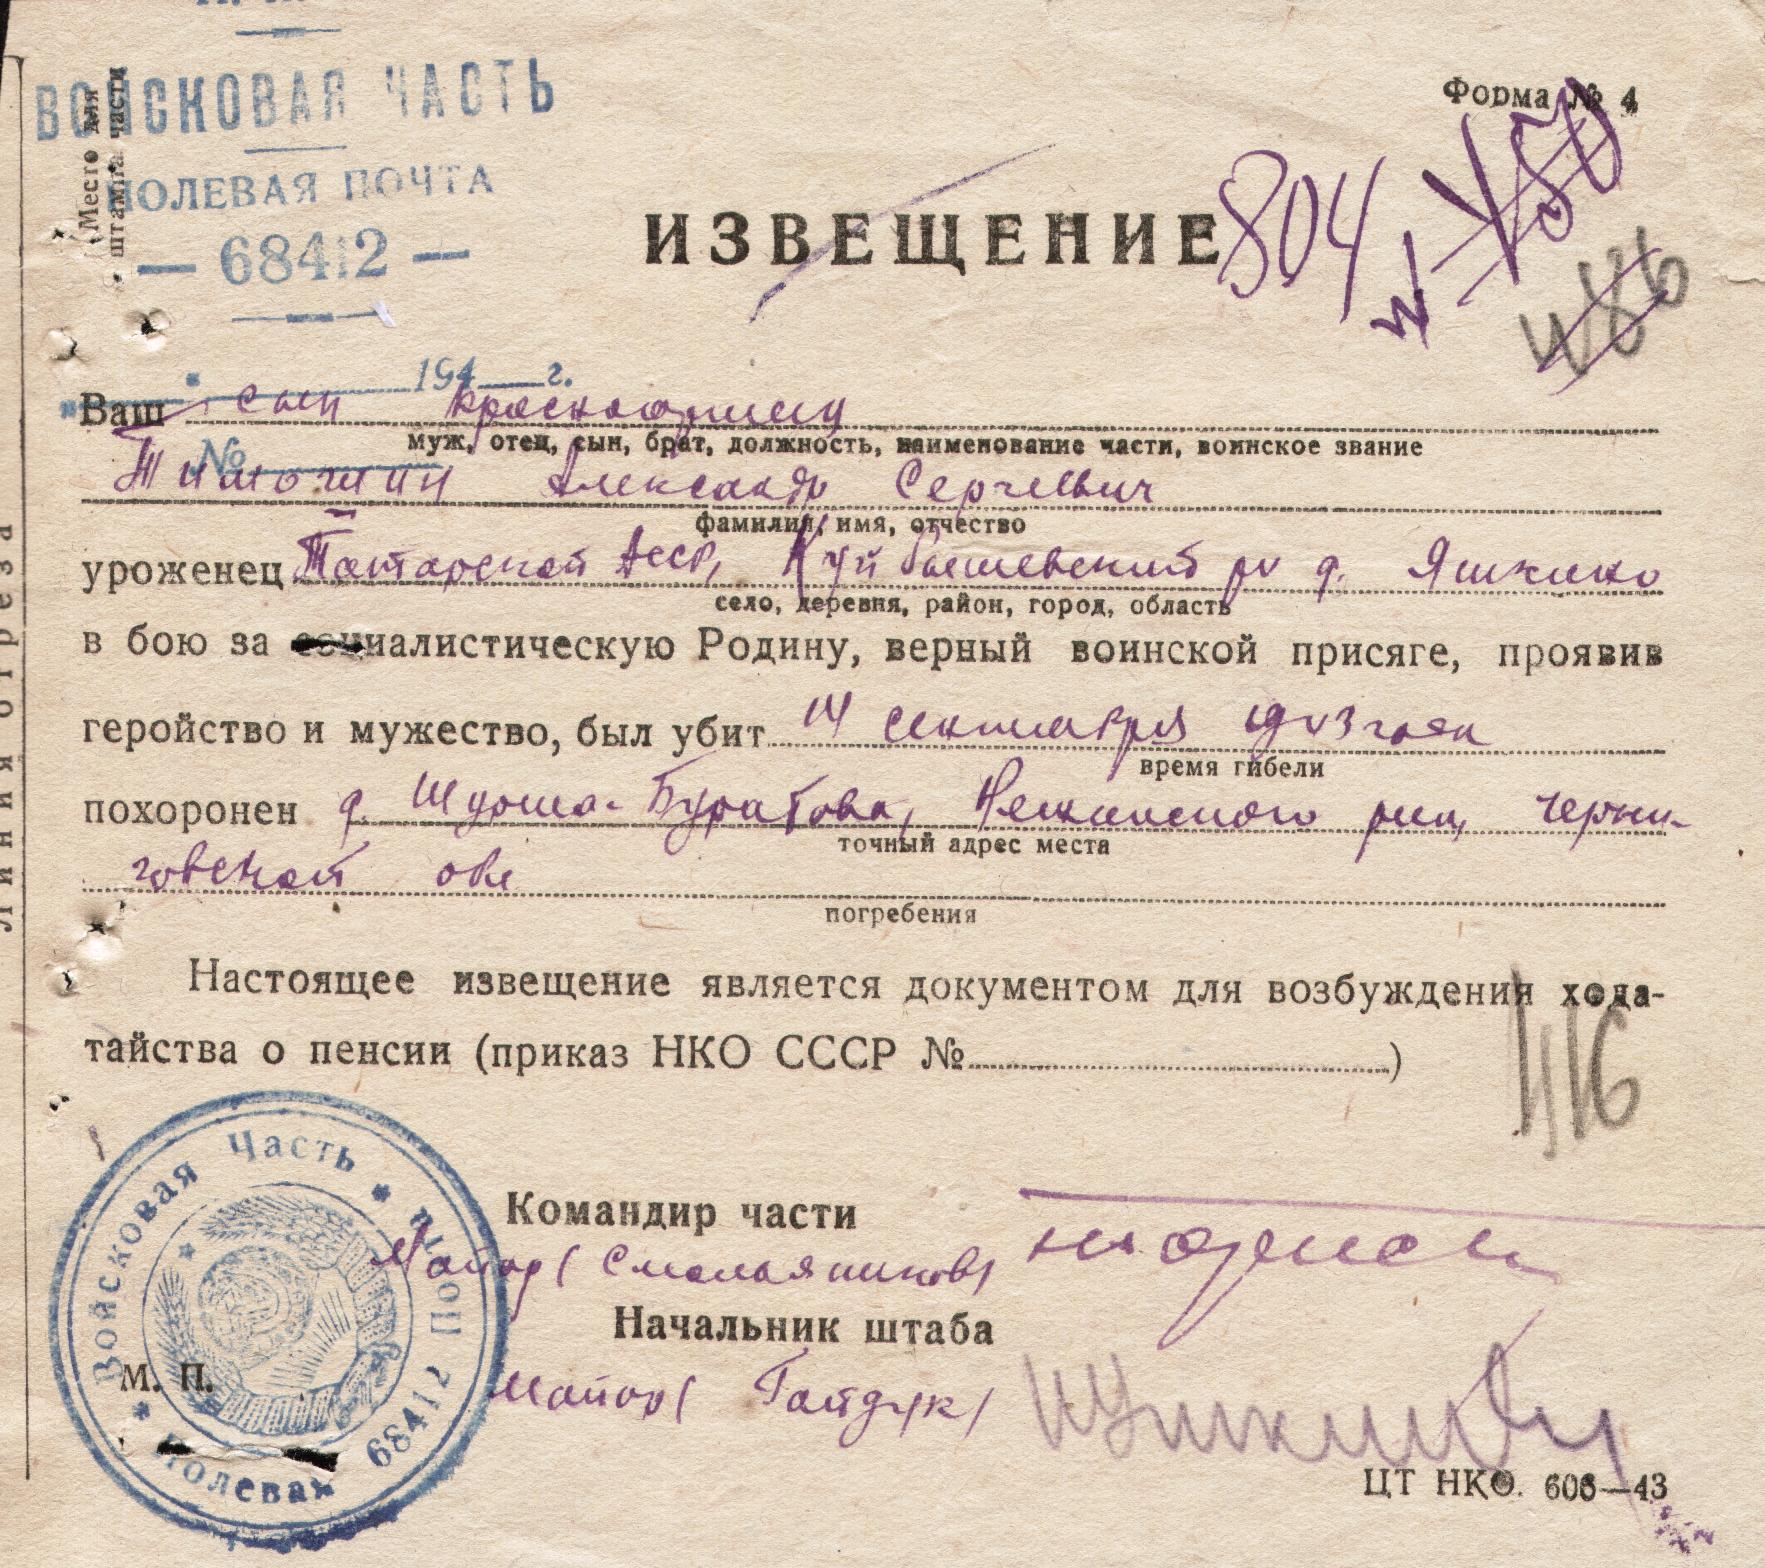 ВОЙСКОВАЯ ЧАСТЬ
ПОЛЕВАЯ ПОЧТА
— 68412 —
(Место для
штампа части
Форма № 4
ИЗВЕЩЕНИЕ
804
486
194 г.
№
Ваш сын красноармеец
муж, отец, сын, брат, должность, наименование части, воинское звание
Тимошин Александр Сергеевич
фамилия, имя, отчество
уроженец Татарской АССР, Куйбышевский рн д. Яшкино
село, деревня, район, город, область
в бою за социалистическую Родину, верный воинской присяге, проявив
геройство и мужество, был убит 14 сентября 1943 года
время гибели
похоронен д. Шурша-Буратова, Нежинского рна, Черни-
точный адрес места
говской обл
погребения
Настоящее извещение является документом для возбуждения хода-
тайства о пенсии (приказ НКО СССР № )
Командир части
Майор (Смольянинов)
Начальник штаба
Майор (Гайдук)
М. П.
Войсковая Часть * Полевая Почта 68412 *
ЦТ НКО. 606—43
Линия отреза